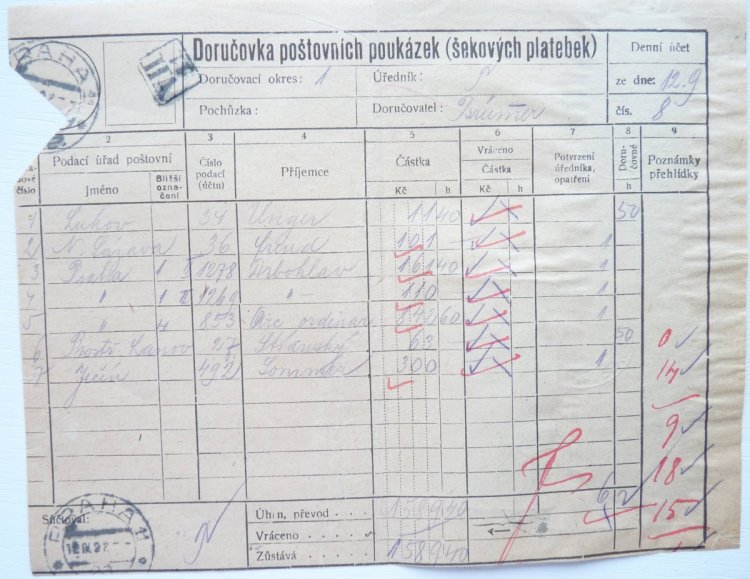 PRAHA
Doručovka poštovních poukázek (šekových platebek)
Denní účet
Doručovací okres: 1 Úředník:
ze dne: 12.9
Pochůzka: Doručovatel:
čís. 8
2 3 4 5 6 7 8 9
Podací úřad poštovní Číslo podací (účtu) Příjemce Částka Vráceno Potvrzení úředníka, opatření Doručovné Poznámky přehlídky
číslo Jméno Bližší označení Kč h Částka Kč h h
1 Lukov 34 Unger 11 40 50
2 N. Sázava 36 101 1
3 Praha 1278 Drbohlav 161 40 1
4 " 1 II 1269 " 110 1
5 " 853 60 1
6 27 63 50 0
7 Jičín 492 Sommer 300 1 14
9
18
6 2 15
Súčtoval: Úhrn, převod 1589 40
Vráceno
Zůstává 1589 40
PRAHA 11